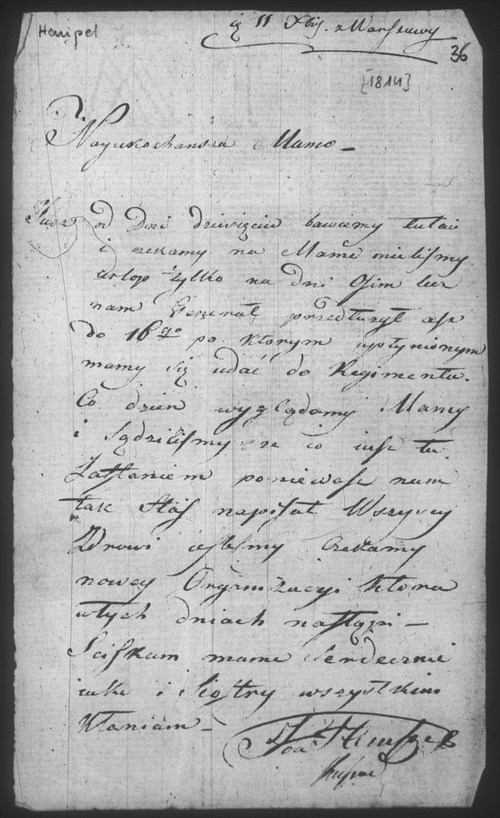 Haupel
11 Xbr. z Warszawy
36
[1814]
Nayukochansza Mamo –
od Dni dziewięciu bawiemy tutai
i czekamy na Mame mieliśmy
urlop tylko na dni Osim lecz
nam Generał przedłużył asz
do 16go po którym upłynionym
mamy się udać do Regimentu.
Co dzien wyglądamy Mamy
i sądziliśmy ze co iusz tu
Zastaniem poniewasz nam
tak Staś napisał Wszyscy
Zdrowi iestesmy Czekamy
nowey Organizacyi ktora
wtych dniach nastąpi –
Sciskam mame serdecznie
i Siostry wszystkim
Kłaniam –